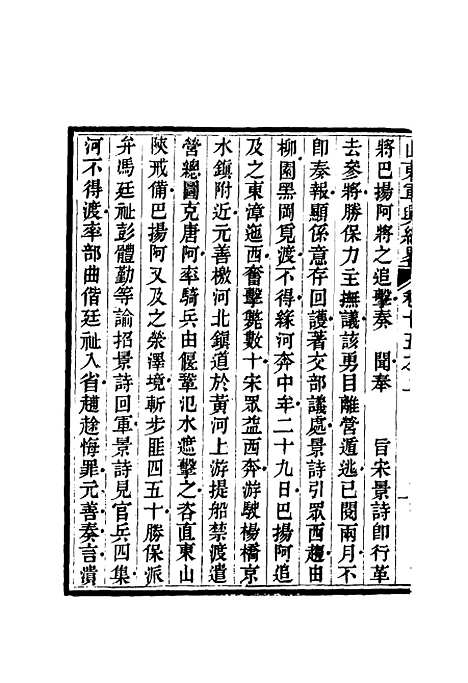 山東軍興紀畧 卷十五之
將巴揚阿將之追擊奏　聞奉　　旨宋景詩卽行革
去參將勝保力主撫議該勇目離營遁逃已閱兩月不
卽奏報顯係意存回護著交部議處景詩引眾西趨由
柳園黑岡覓渡不得緣河奔中牟二十九日巴揚阿追
及之東漳迤西奮擊斃數十宋眾益西奔游駛楊橋京
水鎭附近元善檄河北鎭道於黃河上游提船禁渡遣
營總圖克唐阿率騎兵由偃鞏汜水遮擊之咨直東山
陝戒備巴揚阿又及之滎澤境斬步匪四五十勝保派
弁馮廷祉彭體勤等諭招景詩回軍景詩見官兵四集
河不得渡率部曲偕廷祉入省趦趄悔罪元善奏言潰